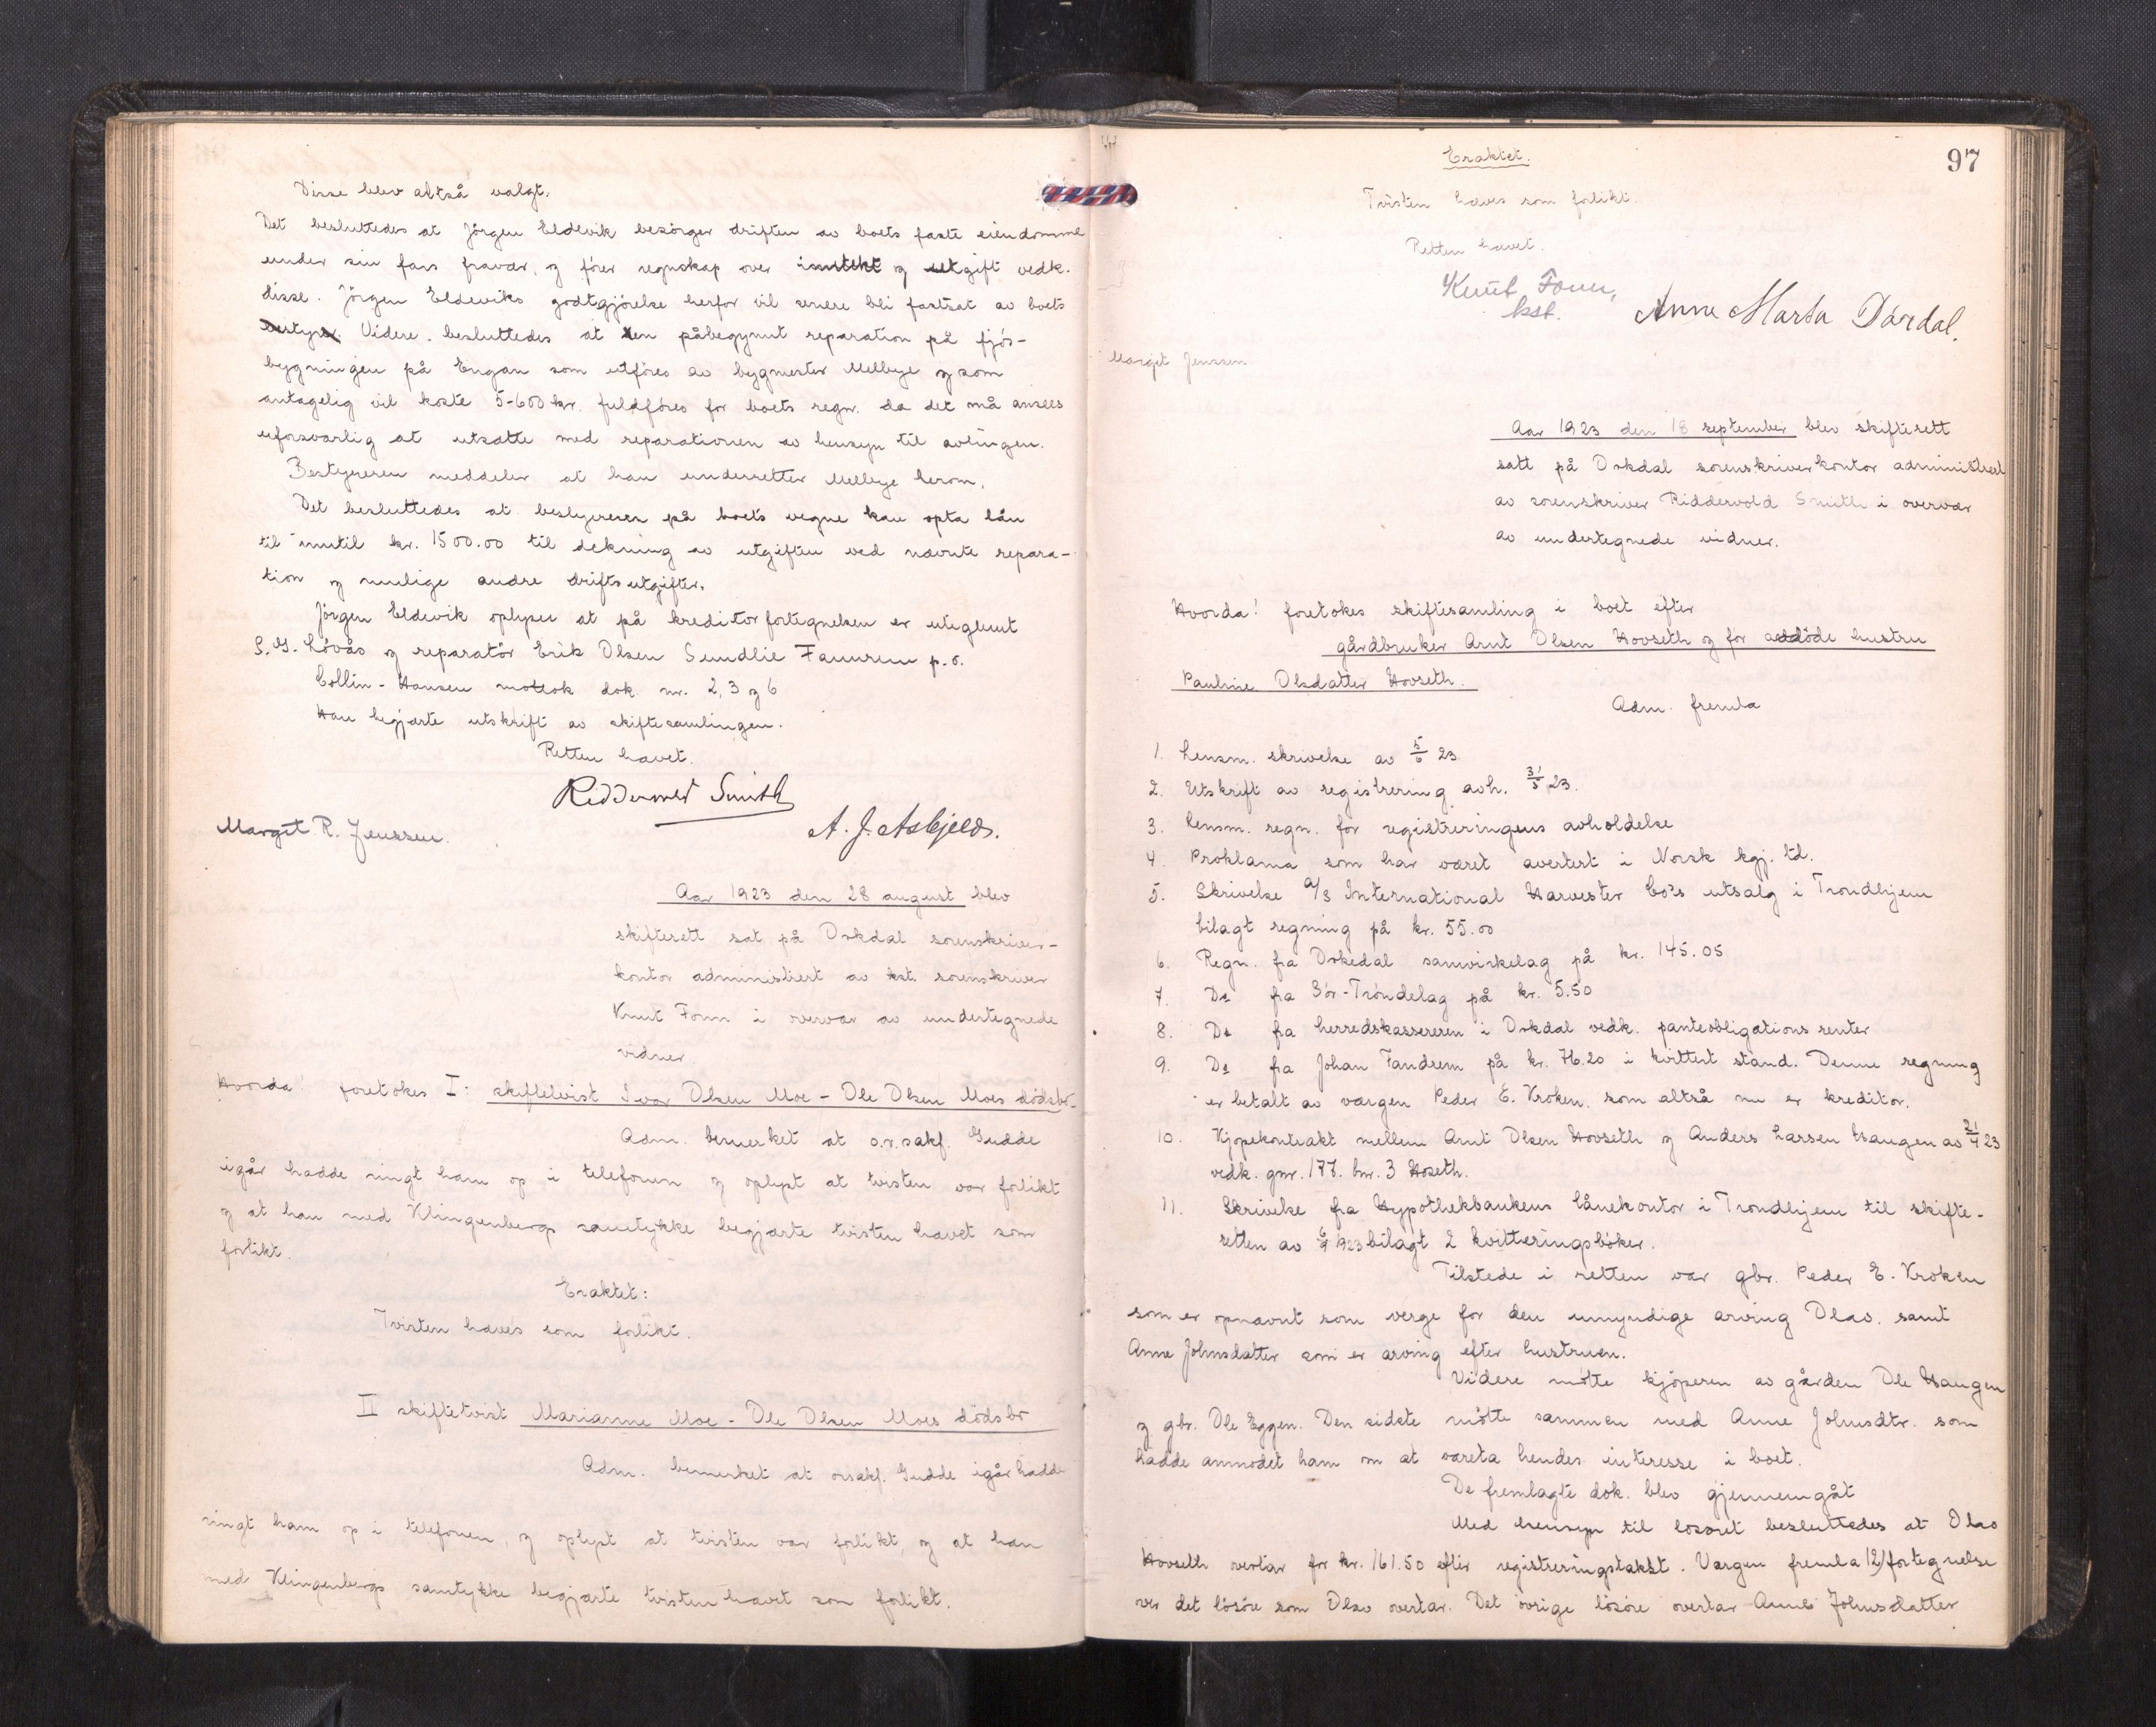 Disse blev altså valgt.
Det besluttedes at Jörgen Eldevik besörger driften av boets faste eiendomme
under sin fars fravær, og förer regnskap over inntekt og utgift vedk.
disse. Jörgen Eldeviks godtgjörelse herfor vil senere bli fastsat av boets
bestyrer. Videre besluttedes at den påbegynnt reparation på fjös-
bygningen på Engan som utföres av bygmester Melbye og som
antagelig vil koste 5-600 kr. fuldföres for boets regn. da det må ansees
uforsvarlig at utsætte med reparationen av hensyn til avlingen.
Bestyreren meddeler at han underretter Melbye herom.
Det besluttedes at bestyreren på boets vegne kan opta lån
til inntil kr. 1500.00 til dekning av utgiften ved nævnte repara-
tion og mulige andre driftsutgifter.
Jörgen Eldevik oplyser at på kreditorfortegnelsen er uteglemt
S. G. Lövås og reparatör Erik Olsen Sundlie Fannrem p.o.
Collin-Hansen mottok dok. nr. 2, 3 og 6
Han begjærte utskrift av skiftesamlingen.
Retten hævet.
Riddervold Smith
Margit R. Jenssen.
A. J. Asbjelds.
Aar 1923 den 28 august blev
skifterett sat på Orkdal sorenskriver-
kontor administrert av kst. sorenskriver
Knut Fonn i overvær av undertegnede
vidner.
Hvorda! foretokes I: skiftetvist Ivar Olsen Moe - Ole Olsen Moes dödsbo.
Adm. bemerket at o.r.sakf. Gudde
igår hadde ringt ham op i telefonen og oplyst at tvisten var forlikt
og at han med Klingenbergs samtykke begjærte tvisten hævet som
forlikt.
Eraktet:
Tvisten hæves som forlikt.
II skiftetvist Marianne Moe - Ole Olsen Moes dödsbo
Adm. bemerket at orsakf. Gudde igår hadde
ringt ham op i telefonen, og oplyst at tvisten var forlikt, og at han
med Klingenbergs samtykke begjærte tvisten hævet som forlikt.
97
Eraktet.
Tvisten hæves som forlikt.
Retten hævet.
Knut Fonn,
kst.
Anne Marta Dårdal.
Margit Jenssen
Aar 1923 den 18 september blev skifterett
satt på Orkdal sorenskriverkontor administrert
av sorenskriver Riddervold Smith i overvær
av undertegnede vidner.
Hvorda! foretokes skiftesamling i boet efter
gårdbruker Arnt Olsen Hovseth og før avdöde hustru
Pauline Olsdatter Hovseth.
Adm. fremla
1. Lensm. skrivelse av 5/6 23.
2. Utskrift av registrering avh. 31/5 23.
3. Lensm. regn. for registreringens avholdelse
4. Proklama som har været avertert i Norsk kgj. td.
5. Skrivelse a/s International Harvester Co's utsalg i Trondhjem
bilagt regning på kr. 55.00
6. Regn. fra Orkedal samvirkelag på kr. 145.05
7. Do fra Sör-Tröndelag på kr. 5.50
8. Do fra herredskassereren i Orkdal vedk. panteobligationsrenter
9. Do fra Johan Fandrem på kr. 76.20 i kvittert stand. Denne regning
er betalt av værgen Peder E. Kroken som altså nu er kreditor.
10. Kjöpekontrakt mellem Arnt Olsen Hovseth og Anders Larsen Haugen av 21/4 23
vedk. gnr. 177. bnr. 3 Hoseth.
11. Skrivelse fra Hypothekbankens lånekontor i Trondhjem til skifte-
retten av 6/9 1923 bilagt 2 kvitteringsböker.
Tilstede i retten var gbr. Peder E. Kroken
som er opnævnt som verge for den umyndige arving Olav. samt
Anne Johnsdatter som er arving efter hustruen.
Videre mötte kjöperen av gården Ole Haugen
og gbr. Ole Eggen. Den sidste mötte sammen med Anne Johnsdtr. som
hadde anmodet ham om at vareta hendes interesse i boet.
De fremlagte dok. blev gjennemgåt
Med hensyn til lösöret besluttedes at Olav
Hovseth overtar for kr. 161.50 efter registreringstakst. Værgen fremla 12) fortegnelse
over det lösöre som Olav overtar. Det övrige lösöre overtar Anne Johnsdatter